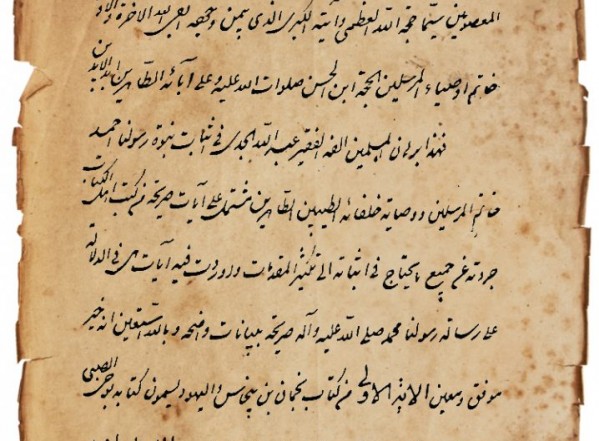 المعصومين سيما حجة الله العظمى وآيته الكبرى الذى بيمن وجهه الآخرة والاولى
خاتم اوصياء المرسلين الحجة ابن الحسن صلوات الله عليه وعلى آبائه الطاهرين ابد الآبدين
فهذا برهان المسلمين الفه الفقير عبد الله المجدى فى اثبات نبوة رسولنا احمد
خاتم المرسلين ووصاية خلفائه الطيبين الطاهرين مشتمل على آيات صريحة من كتب اهل الكتاب
جردته عن جميع ما يحتاج فى اثباته الى تكثير المقدمات واوردت فيه آيات هى فى الدلالة
على رسالة رسولنا محمد صلى الله عليه وآله صريحة ببيانات واضحة وبالله استعين انه خير
موفق ومعين الآية الاولى من كتاب نحمان بن پنحس واليهود يسمون كتابه بوحى الصبى